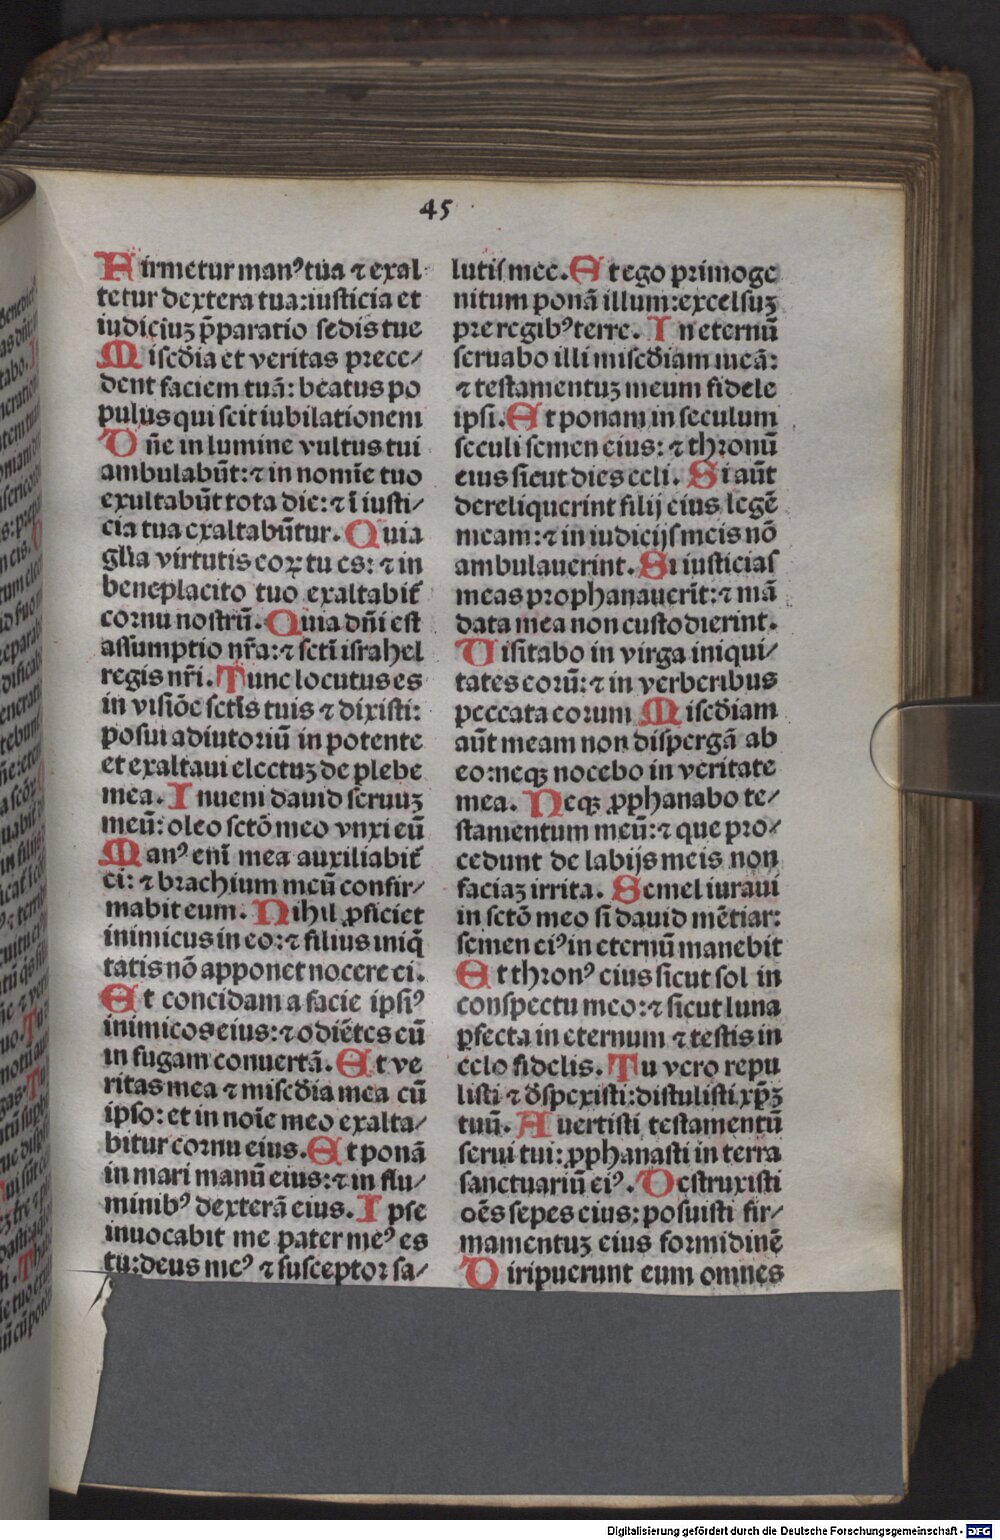 45
Firmetur manꝰ tua ⁊ exal
tetur dextera tua: iusticia et
iudiciuꝫ p̄paratio sedis tue
Misc̄dia et veritas prece/
dent faciem tuā: beatus po
pulus qui scit iubilationem
Dn̄e in lumine vultus tui
ambulabūt: ⁊ in nomīe tuo
exultabūt tota die: ⁊ ī iusti/
cia tua exaltabūtur. Quia
gl̄ia virtutis eoꝝ tu es: ⁊ in
beneplacito tuo exaltabit̄
cornu nostrū. Quia dn̄i est
assumptio nr̄a: ⁊ sctī israhel
regis nr̄i. Tunc locutus es
in visiōe sctīs tuis ⁊ dixisti:
posui adiutoriū in potente
et exaltaui electuꝫ de plebe
mea. Inueni dauid seruuꝫ
meū: oleo sctō meo vnxi eū
Manꝰ enī mea auxiliabit̄
ei: ⁊ brachium meū confir/
mabit eum. Nihil ꝓficiet
inimicus in eo: ⁊ filius iniq̄
tatis nō apponet nocere ei.
Et concidam a facie ipsiꝰ
inimicos eius: ⁊ odiētes eū
in fugam conuertā. Et ve
ritas mea ⁊ misc̄dia mea cū
ipso: et in noīe meo exalta/
bitur cornu eius. Et ponā
in mari manū eius: ⁊ in flu/
minibꝰ dexterā eius. Ipse
inuocabit me pater meꝰ es
tu: deus meꝰ ⁊ susceptor sa/
lutis mee. Et ego primoge
nitum ponā illum: excelsuꝫ
pre regibꝰ terre. In eternū
seruabo illi misc̄diam meā:
⁊ testamentuꝫ meum fidele
ipsi. Et ponam in seculum
seculi semen eius: ⁊ thronū
eius sicut dies celi. Si aūt
dereliquerint filij eius legē
meam: ⁊ in iudicijs meis nō
ambulauerint. Si iusticias
meas prophanauerīt: ⁊ mā
data mea non custodierint.
Visitabo in virga iniqui/
tates eorū: ⁊ in verberibus
peccata eorum Misc̄diam
aūt meam non dispergā ab
eo: neqꝫ nocebo in veritate
mea. Neqꝫ ꝓphanabo te/
stamentum meū: ⁊ que pro/
cedunt de labijs meis non
faciaꝫ irrita. Semel iuraui
in sctō meo si dauid mētiar:
semen eiꝰ in eternū manebit
Et thronꝰ eius sicut sol in
conspectu meo: ⁊ sicut luna
ꝑfecta in eternum ⁊ testis in
celo fidelis. Tu vero repu
listi ⁊ d̄spexisti: distulisti xp̄ꝫ
tuū. Auertisti testamentū
serui tui: ꝓphanasti in terra
sanctuariū eiꝰ. Destruxisti
oēs sepes eius: posuisti fir/
mamentuꝫ eius formidinē
Diripuerunt eum omnes
Digitalisierung gefördert durch die Deutsche Forschungsgemeinschaft - DFG